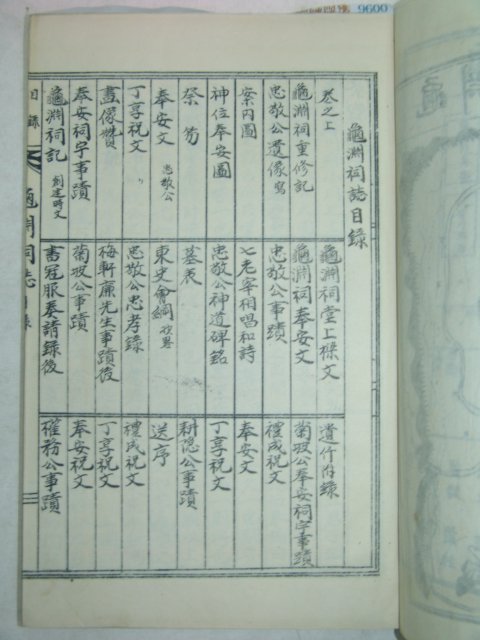 9600
龜淵祠誌目錄
卷之上
龜淵祠重修記
忠敬公遺像寫
案內圖
神位奉安圖
祭笏
奉安文 忠敬公
丁享祝文 〃
畫像贊
奉安祠宇事蹟
龜淵祠記 創建時文
龜淵祠堂上樑文
龜淵祠奉安文
忠敬公事蹟
七老宰相唱和詩
忠敬公神道碑銘
墓表
東史會綱
忠敬公忠孝錄
梅軒廉先生事蹟後
菊坡公事蹟
書冠服奏請錄後
遺什附錄
菊坡公奉安祠宇事蹟
禮成祝文
奉安文
丁享祝文
耕隱公事蹟
送序
禮成祝文
丁享祝文
奉安祝文
務公事蹟
目錄
龜淵祠誌目錄